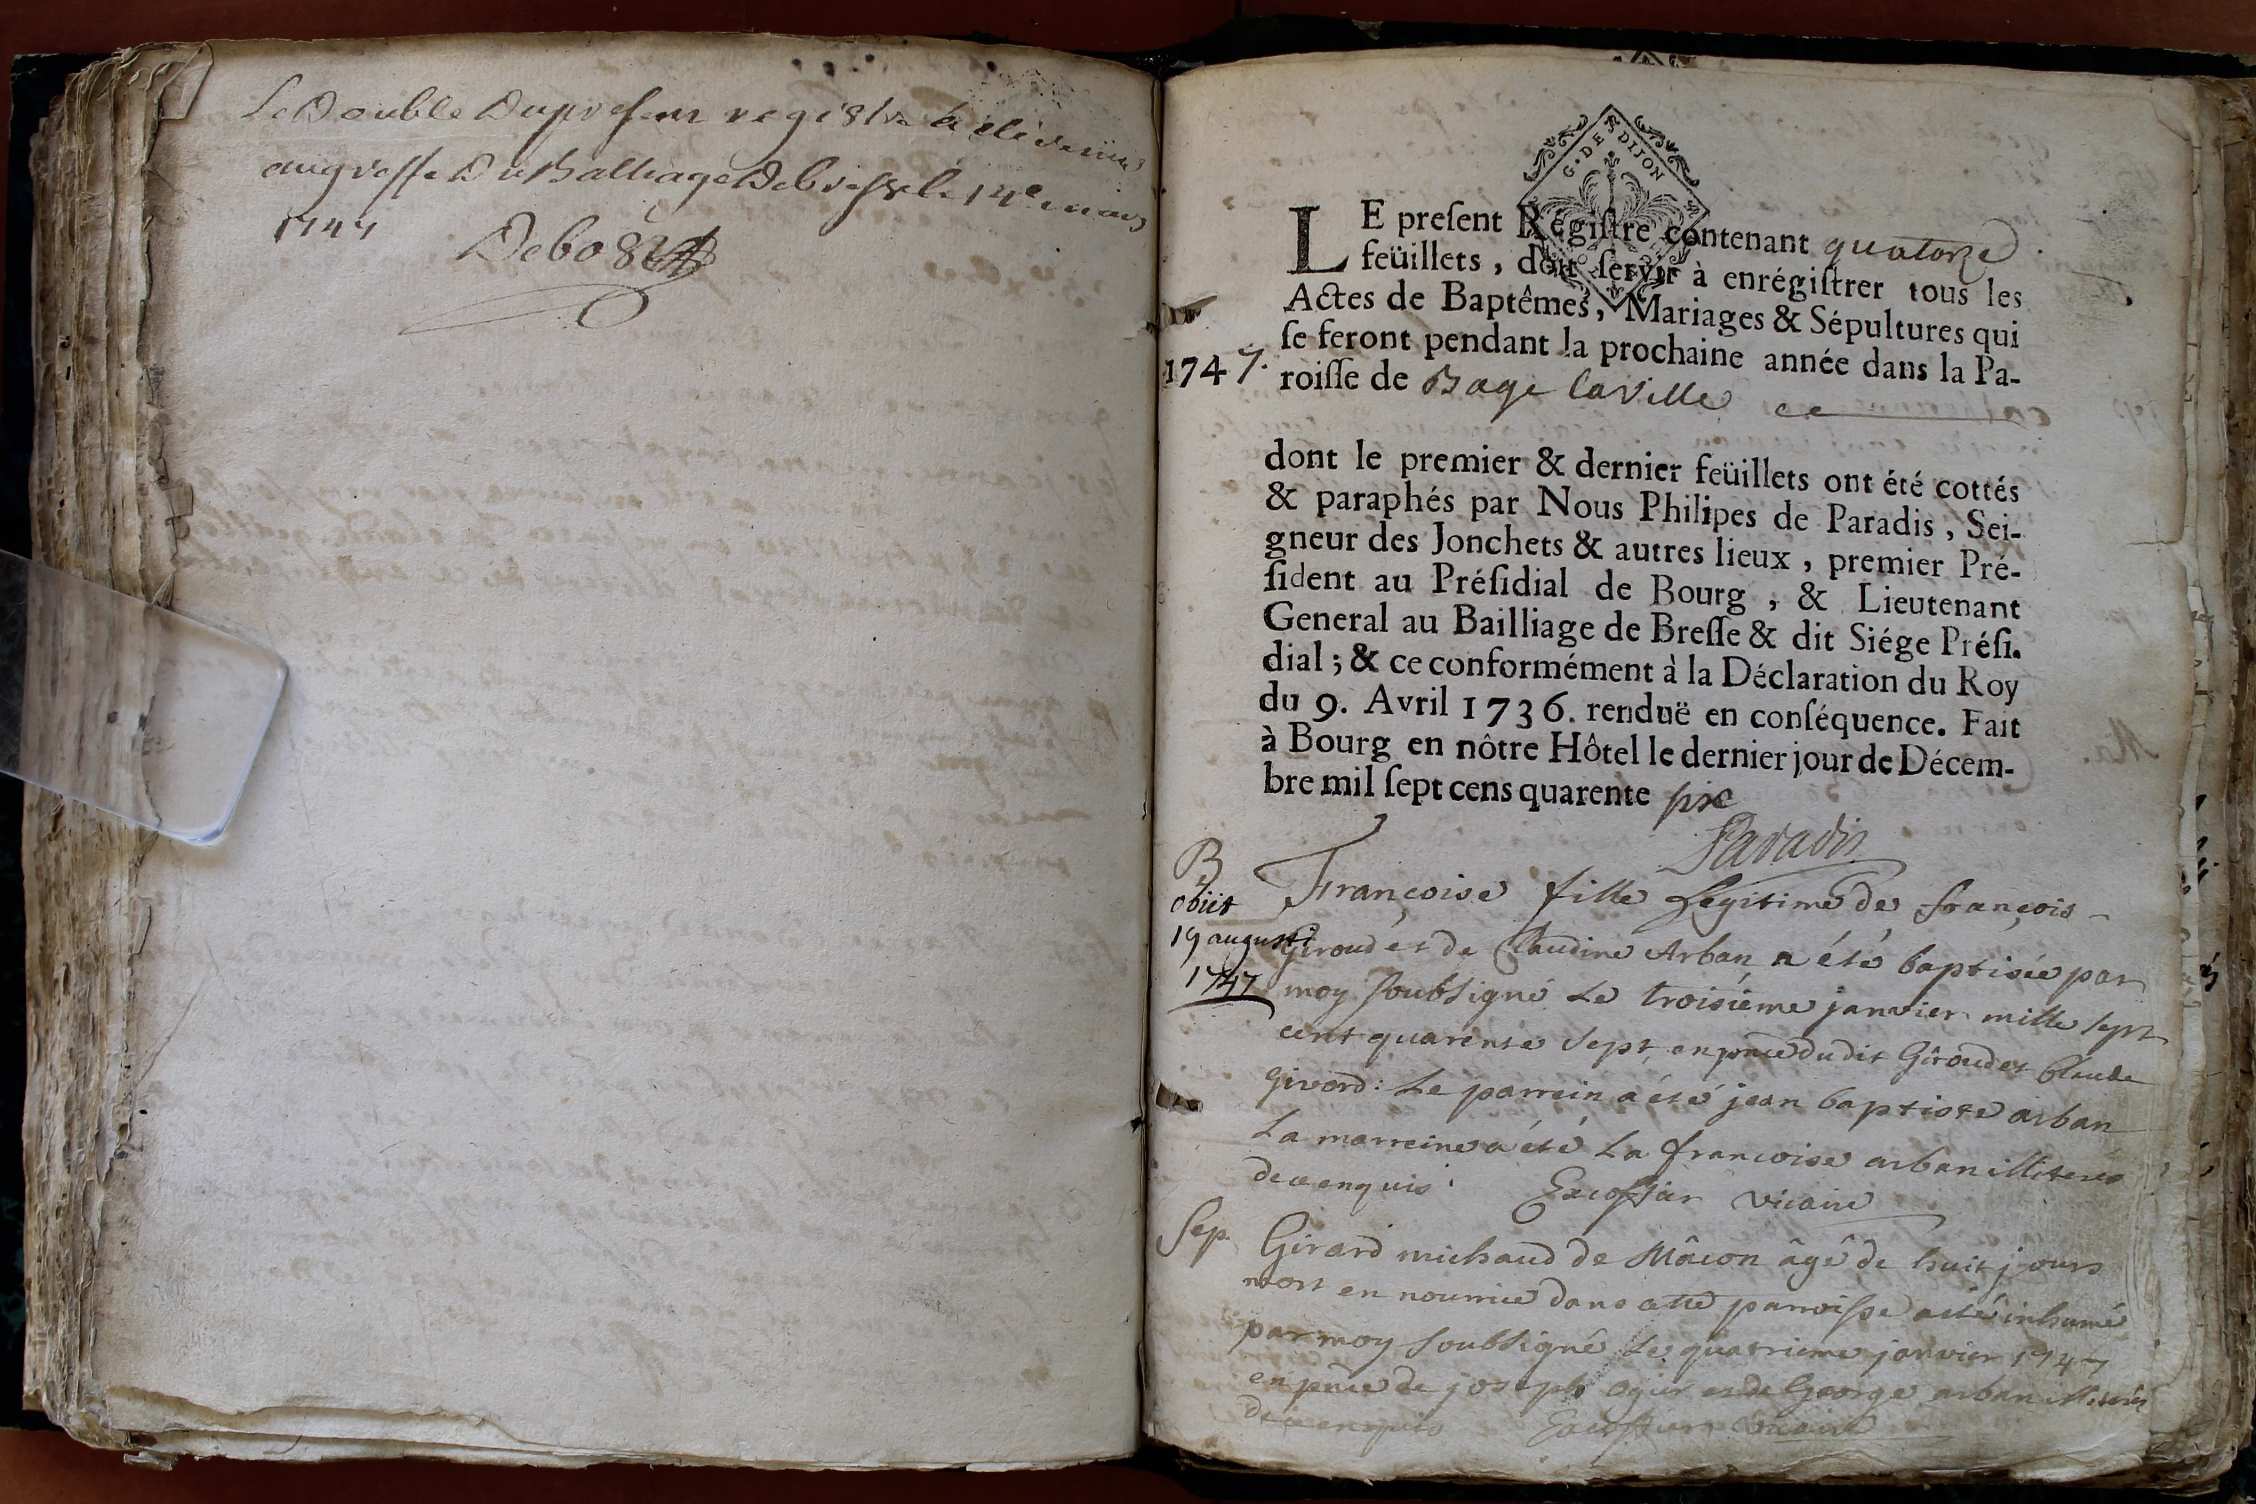 Le Double Du present registre a été remis
au greffe Du Balliage De bresse le 14e mars
1747
Debost
G. DE DIJON
LE preſent Régiſtre contenant quatorze
feüillets, doit ſervir à enrégiſtrer tous les
Actes de Baptêmes, Mariages & Sépultures qui
ſe feront pendant la prochaine année dans la Pa-
1747.
roiſſe de Bage la Ville
dont le premier & dernier feüillets ont été cottés
& paraphés par Nous Philipes de Paradis, Sei-
gneur des Jonchets & autres lieux, premier Pré-
ſident au Préſidial de Bourg, & Lieutenant
General au Bailliage de Breſſe & dit Siége Préſi-
dial; & ce conformément à la Déclaration du Roy
du 9. Avril 1736. renduë en conſéquence. Fait
à Bourg en nôtre Hôtel le dernier jour de Décem-
bre mil ſept cens quarente six
Paradis
B
obiit
19 augusti
1747
Françoise fille Legitime de françois
Giroud et de Claudine Arban a été baptisée par
moy soubsigné Le troisième janvier mille sept
cent quarente sept en pnce dudit Giroud et Claude
givord: Le parrein a été jean baptiste arban
La marreine a été La françoise arban illiterés
de ce enquis. Excoffier vicaire
Sep. Girard michaud de Mâcon âgé de huit jours
mort en nourrice dans cette parroisse a été inhumé
par moy soubsigné Le quatrieme janvier 1747
en pnce de joseph ogier et de George arban illiterés
de ce enquis Excoffier vicaire